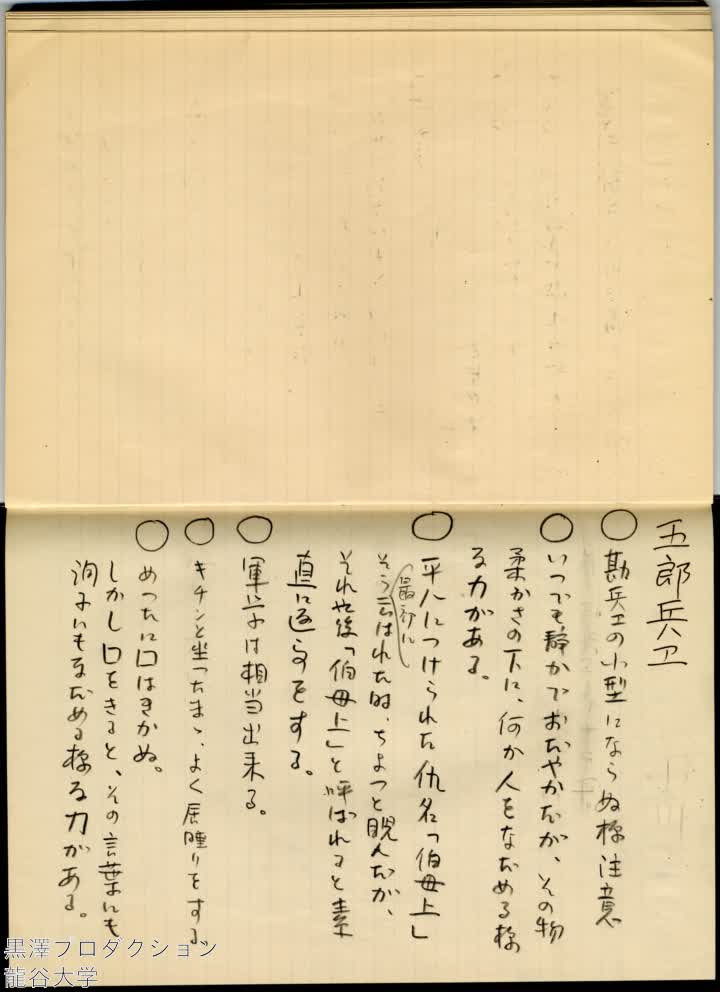 五郎兵ヱ
○ 勘兵ヱの小型にならぬ様注意
○ いつでも静かでおだやかだが、その物
柔かさの下に、何か人をなだめる様
る力がある。
○ 平八につけられた仇名「伯母上」
最初に
そう云はれた時、ちょつと睨んだが、
それや後「伯母上」と呼ばれると素
直に返事をする。
○ 軍学は相当出来る。
○ キチンと坐つたまゝ、よく居睡りをする
○ めつたに口はきかぬ。
しかし口をきると、その言葉にも
何もなだめる様な力がある。
黒澤プロダクション
龍谷大学